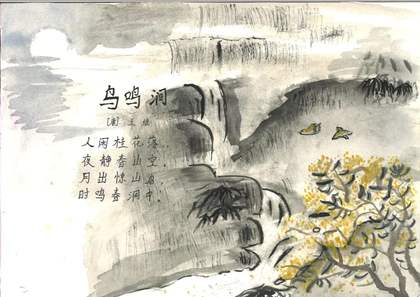 鸟鸣涧
[唐] 王维
人闲桂花落，
夜静春山空。
月出惊山鸟，
时鸣春涧中。